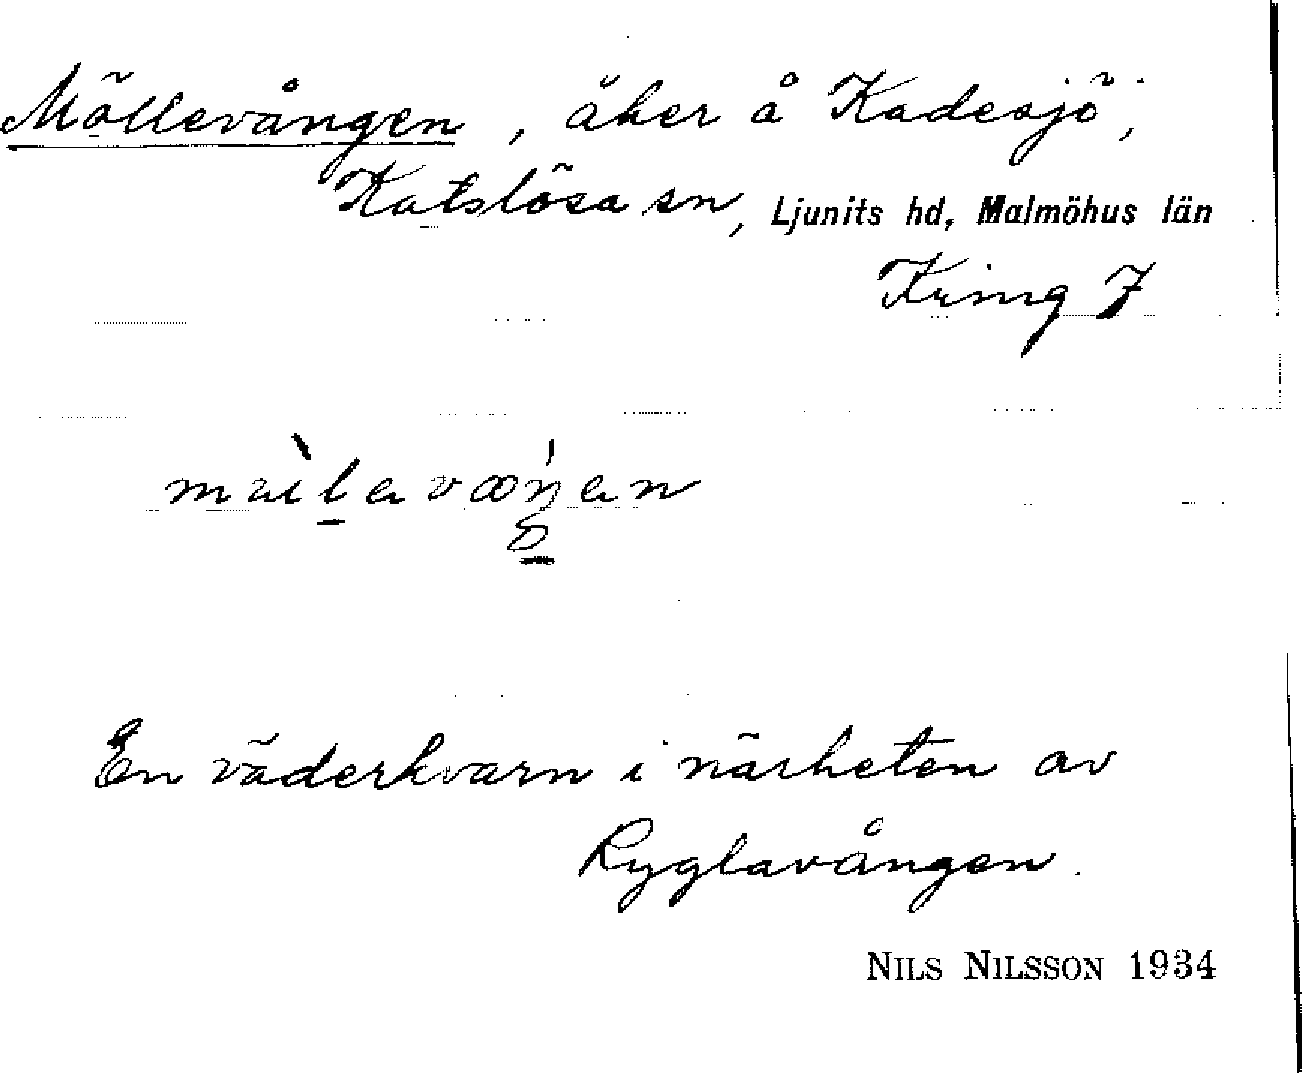 Möllevången, åker å Kadesjö,
Katslösa sn, Ljunits hd, Malmöhus län
Kring 7
En väderkvarn i närheten av
Ryglavången.
NILS NILSSON 1934